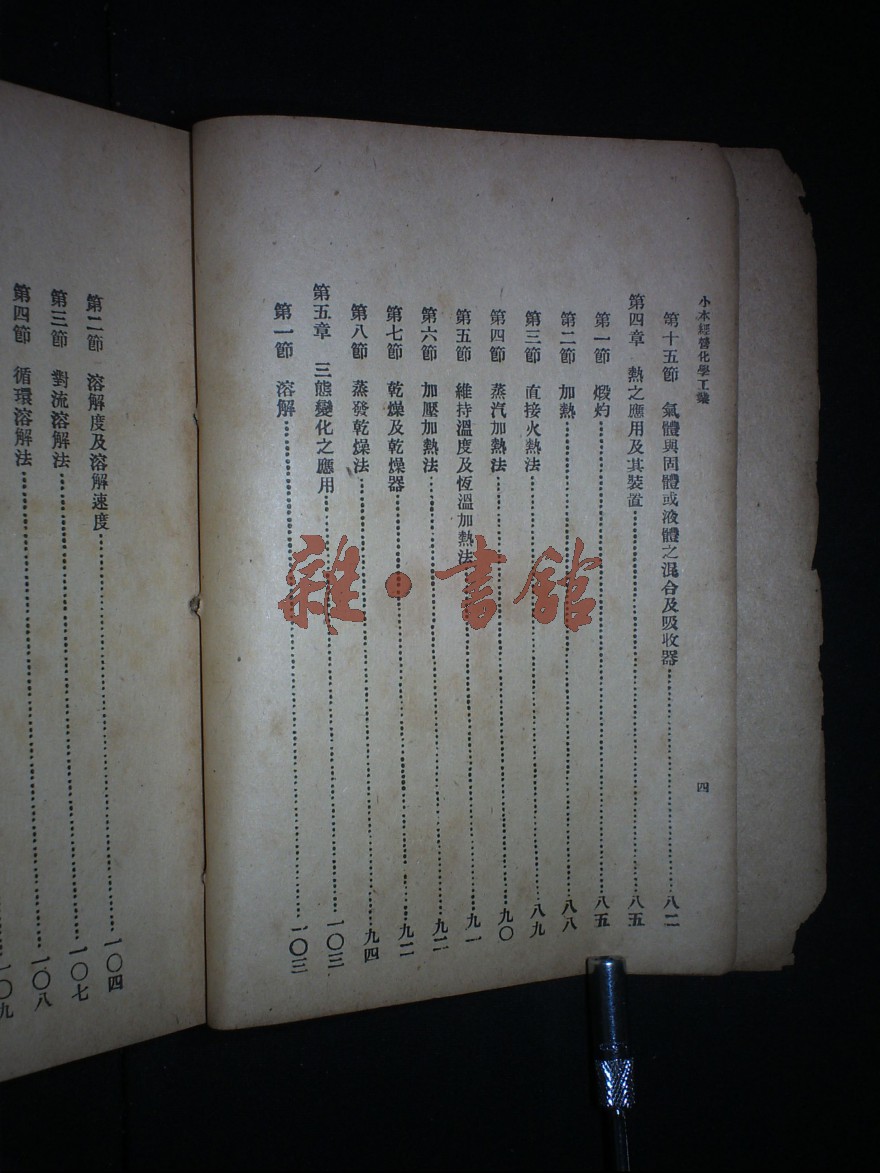 小本經營化學工業
四
第十五節 氣體與固體或液體之混合及吸收器……八二
第四章 熱之應用及其裝置……八五
第一節 煅灼……八五
第二節 加熱……八八
第三節 直接火熱法……八九
第四節 蒸汽加熱法……九〇
第五節 維持溫度及恆溫加熱法……九一
第六節 加壓加熱法……九二
第七節 乾燥及乾燥器……九二
第八節 蒸發乾燥法……九四
第五章 三態變化之應用……一〇三
第一節 溶解……一〇三
第二節 溶解度及溶解速度……一〇四
第三節 對流溶解法……一〇七
第四節 循環溶解法……一〇八
一〇九
雜·書館